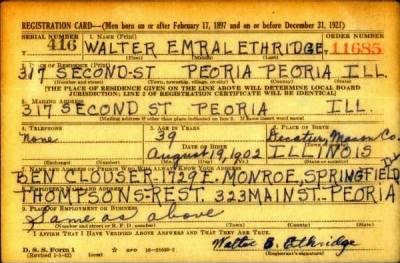 REGISTRATION CARD—(Men born on or after February 17, 1897 and on or before December 31, 1921)
SERIAL NUMBER 1. NAME (Print) ORDER NUMBER
416 WALTER EMRAL ETHRIDGE 11685
(First) (Middle) (Last)
2. PLACE OF RESIDENCE (Print)
317 SECOND-ST PEORIA PEORIA ILL.
(Number and street) (Town, township, village, or city) (County) (State)
[THE PLACE OF RESIDENCE GIVEN ON THE LINE ABOVE WILL DETERMINE LOCAL BOARD
JURISDICTION; LINE 2 OF REGISTRATION CERTIFICATE WILL BE IDENTICAL]
3. MAILING ADDRESS
317 SECOND ST PEORIA ILL.
[Mailing address if other than place indicated on line 2. If same insert word same]
4. TELEPHONE 5. AGE IN YEARS 6. PLACE OF BIRTH
None 39 Decatur, Macon Co.
DATE OF BIRTH
August 19, 1902 ILLINOIS
(Exchange) (Number) (Mo.) (Day) (Yr.) (State or country)
7. NAME AND ADDRESS OF PERSON WHO WILL ALWAYS KNOW YOUR ADDRESS
BEN CLOUSER 1729 E. MONROE, SPRINGFIELD
8. EMPLOYER'S NAME AND ADDRESS
THOMPSONS-REST. 323 MAIN ST. PEORIA
9. PLACE OF EMPLOYMENT OR BUSINESS
Same as above
(Number and street or R. F. D. number) (Town) (County) (State)
I AFFIRM THAT I HAVE VERIFIED ABOVE ANSWERS AND THAT THEY ARE TRUE.
D. S. S. Form 1
(Revised 1-1-42) GPO Walter E. Ethridge
(Registrant's signature)